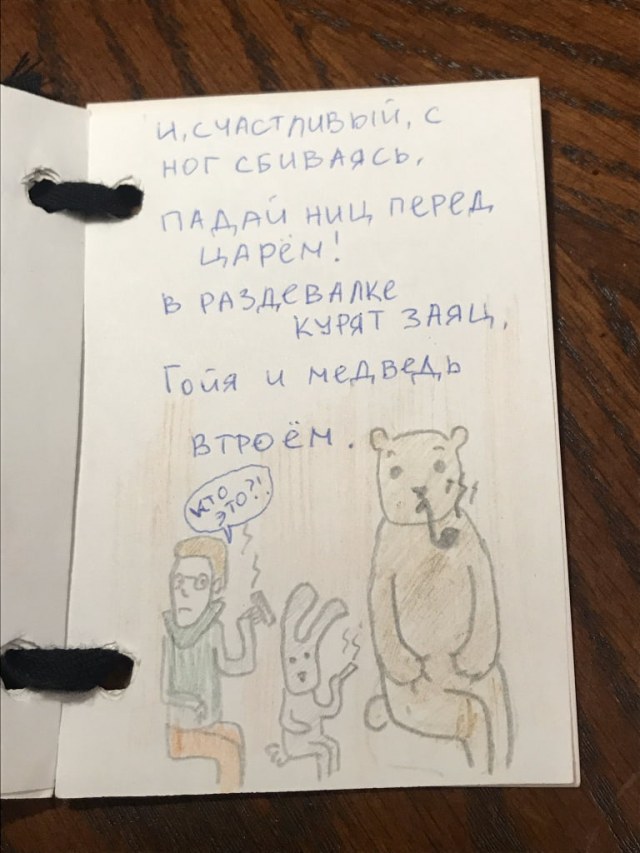 И, СЧАСТЛИВЫЙ, С
НОГ СБИВАЯСЬ,
ПАДАЙ НИЦ ПЕРЕД
ЦАРЁМ!
В РАЗДЕВАЛКЕ
КУРЯТ ЗАЯЦ,
Гойя и медведь
ВТРОЁМ.
КТО
ЭТО?!